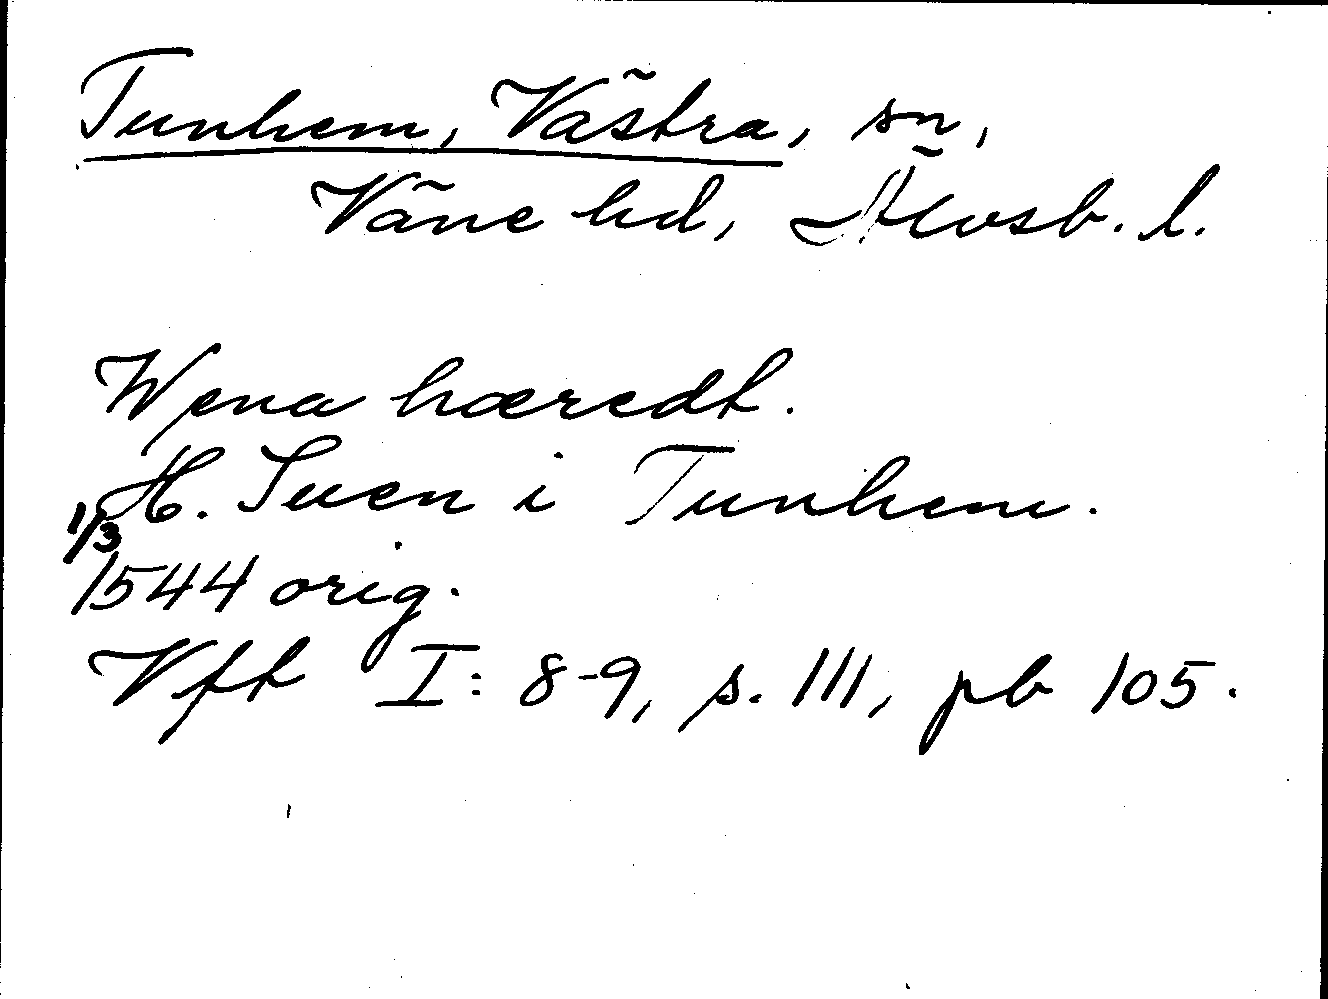 Tunhem, Västra, sn,
Väne hd, Älvsb. l.
Wena hæredt.
H. Suen i Tunhem.
1/3
1544 orig.
Vft I: 8-9, s. 111, pb 105.